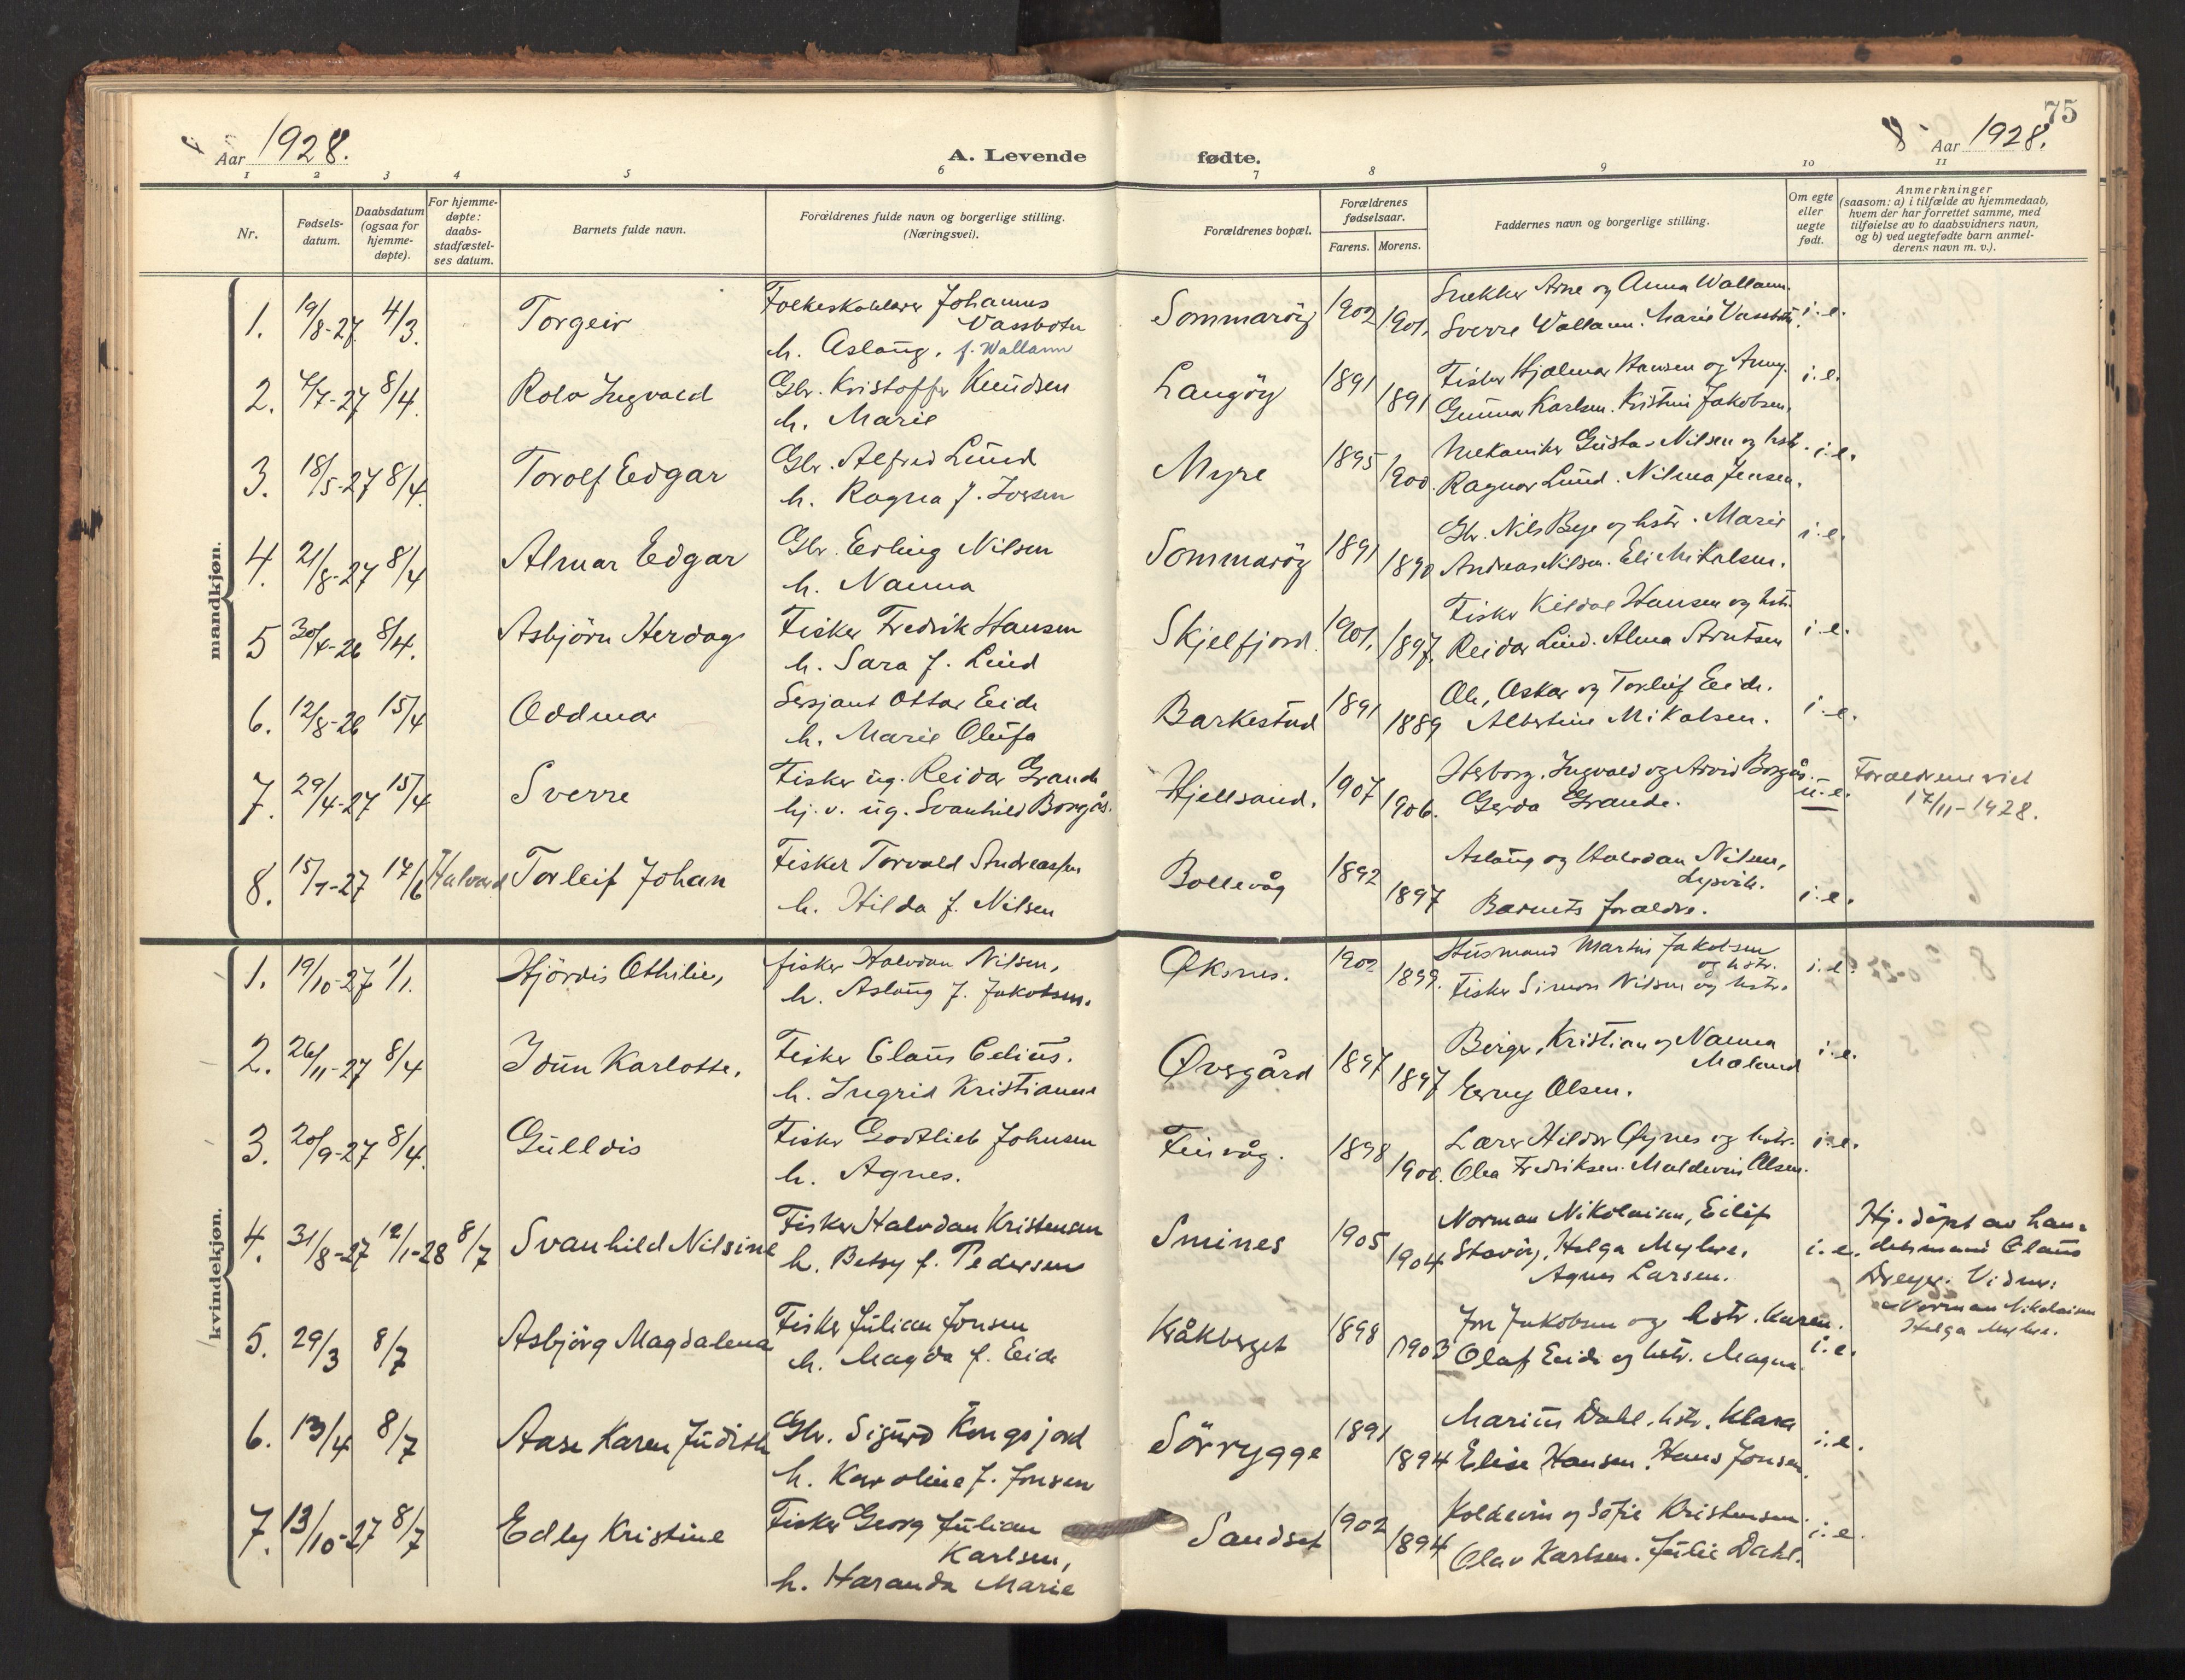 Aar 1928.
A. Levende
fødte.
75
8 Aar 1928.
1 2 3 4 5 6 7 8 9 10 11
Nr.
Fødsels-
datum.
Daabsdatum
(ogsaa for
hjemme-
døpte).
For hjemme-
døpte:
daabs-
stadfæstel-
ses datum.
Barnets fulde navn.
Forældrenes fulde navn og borgerlige stilling.
(Næringsvei).
Forældrenes bopæl.
Forældrenes
fødselsaar.
Farens. Morens.
Faddernes navn og borgerlige stilling.
Om egte
eller
uegte
født.
Anmerkninger
(saasom: a) i tilfælde av hjemmedaab,
hvem der har forrettet samme, med
tilføielse av to daabsvidners navn,
og b) ved uegtefødte barn anmel-
derens navn m. v.).
mandkjøn.
1. 19/8-27 4/3. Torgeir
Folkeskolelærer Johannes
Vassbotn
h. Aslaug, f. Wallann
Sommarøy 1902 1901.
Snekker Arne og Anna Wallann.
Sverre Wallann. Marie Vassbotn. i.e.
2. 4/7-27 8/4. Rolv Ingvald
Gbr. Kristoffer Knudsen
h. Marie
Langøy 1891 1891
Fisker Hjalmar Hansen og Anny.
Gunnar Karlsen. Kristine Jakobsen. i.e.
3. 18/5-27 8/4. Torolf Edgar
Gbr. Alfred Lund
h. Ragna f. Iversen
Myre 1895 1900.
Mekaniker Gustav Nilsen og hstr.
Ragnar Lund. Nilma Jensen. i.e.
4. 21/8-27 8/4 Almar Edgar
Gbr. Erling Nilsen
h. Nanna
Sommarøy 1891 1890
Gbr. Nils Beye og hstr. Marie
Andreas Nilsen. Eli Mikalsen. i.e.
5 30/4-26 8/4. Asbjörn Herdag
Fisker Fredrik Hansen
h. Sara f. Lund
Skjelfjord. 1901. 1897.
Fisker Kildal Hansen og hstr.
Reidar Lund. Alma Arntsen i.e.
6. 12/8-26 15/4 Oddmar
Sersjant Ottar Eide
h. Marie Olufa
Barkestad 1891 1889
Ole, Oskar og Torleif Eide.
Albertine Mikalsen. i.e.
7. 29/4-27 15/4 Sverre
Fisker ug. Reidar Grande
hj. v. ug. Svanhild Borgås.
Hjellsand. 1907 1906.
Herborg, Ingvald og Arvid Borgås.
Gerda Grande. u.e.
Forældrene viet
17/11-1928.
8. 15/7-27 17/6 Halvard Torleif Johan
Fisker Torvald Andreassen
h. Hilda f. Nilsen
Bollevåg 1892 1897
Aslaug og Halvdan Nilsen,
Barnets foreldre. i.e.
kvindekjøn.
1. 19/10-27 1/1. Hjördis Othilie,
fisker Halvdan Nilsen,
h. Aslaug f. Jakobsen.
Øksnes. 1902 1899.
Husmand Martin Jakobsen
og hstr.
Fisker Simon Nilsen og hstr. i.e.
2. 26/11-27 8/4 Idun Karlotte.
Fisker Claus Celius.
h. Ingrid Kristianne
Øvsgård 1897 1897
Birger, Kristian og Nanna
Moland
Erny Olsen. i.e.
3. 20/9-27 8/4. Gulldis
Fisker Godtlieb Johnsen
h. Agnes.
Finvåg. 1898 1900.
Lærer Hildor Øynes og hstr.
Olea Fredriksen. Maldevin Olsen. i.e.
4. 31/8-27 12/1-28 8/7 Svanhild Nilsine
Fisker Halvdan Kristensen
h. Betsy f. Pedersen
Smines 1905 1904
Norman Nikolaisen, Eilif
Stavöy, Helga Myhre,
Agnes Larsen. i.e.
Hj. döpt av han-
delsmand Claus
Dreyer. Vidner:
Norman Nikolaisen
Helga Myhre.
5. 29/3 8/7 Asbjörg Magdalena
Fisker Julian Jonsen
h. Magda f. Eide
Kråkberget 1898 1903
Jon Jakobsen og hstr. Karen.
Olaf Eide og hstr. Magna. i.e.
6. 13/4 8/7 Aase Karen Judith
Gbr. Sigurd Kongsjord
h. Karoline f. Jonsen
Sörrygge 1891 1894
Marius Dahl, hstr. Klara
Elise Hansen. Hans Jonsen. i.e.
7. 13/10-27 8/7 Edly Kristine
Fisker Georg Julian
Karlsen,
h. Haranda Marie
Sandset 1902 1894
Koldevin og Sofie Kristensen.
Olav Karlsen. Julie Dahl. i.e.